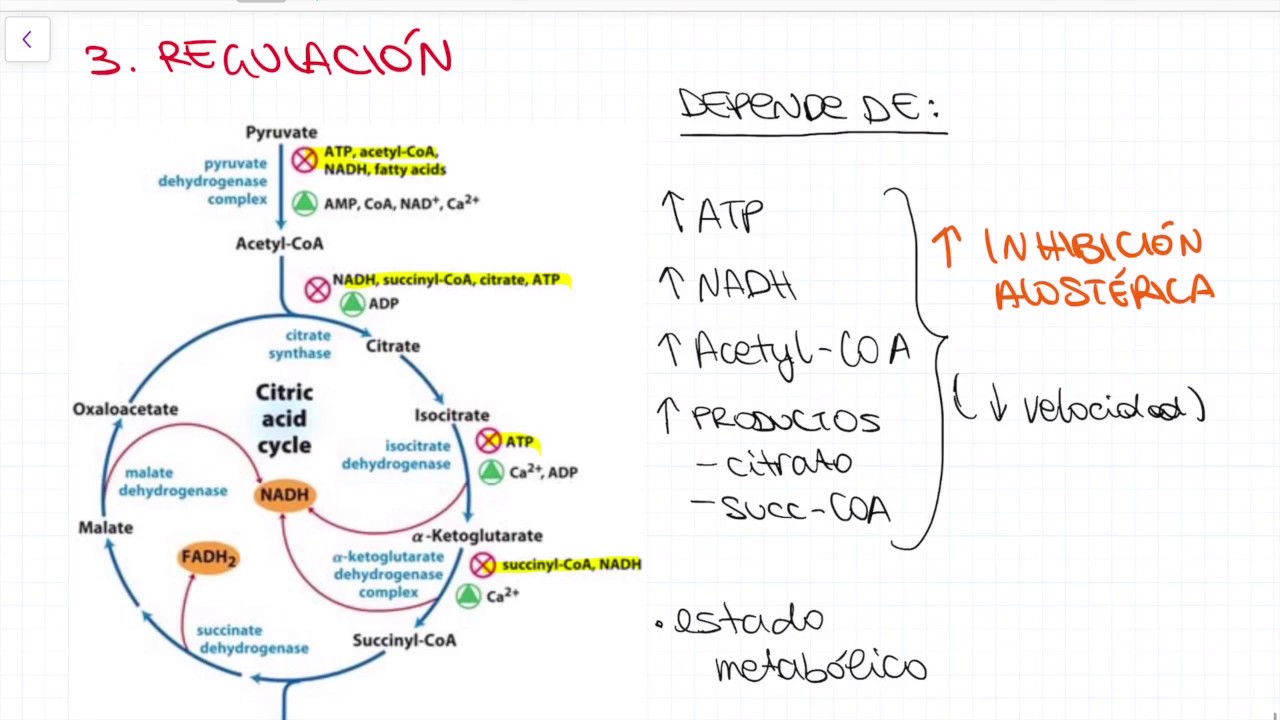 3. REGULACIÓN
Pyruvate
pyruvate
dehydrogenase
complex
ATP, acetyl-CoA,
NADH, fatty acids
AMP, CoA, NAD⁺, Ca²⁺
Acetyl-CoA
NADH, succinyl-CoA, citrate, ATP
ADP
citrate
synthase
Citrate
Oxaloacetate
Citric
acid
cycle
Isocitrate
isocitrate
dehydrogenase
ATP
Ca²⁺, ADP
malate
dehydrogenase
NADH
Malate
α-Ketoglutarate
FADH₂
α-ketoglutarate
dehydrogenase
complex
succinyl-CoA, NADH
Ca²⁺
succinate
dehydrogenase
Succinyl-CoA
DEPENDE DE:
↑ ATP
↑ NADH
↑ Acetyl-COA
↑ PRODUCTOS
- citrato
- succ-COA
↑ INHIBICIÓN
ALOSTÉRICA
(↓ velocidad)
. estado
metabólico